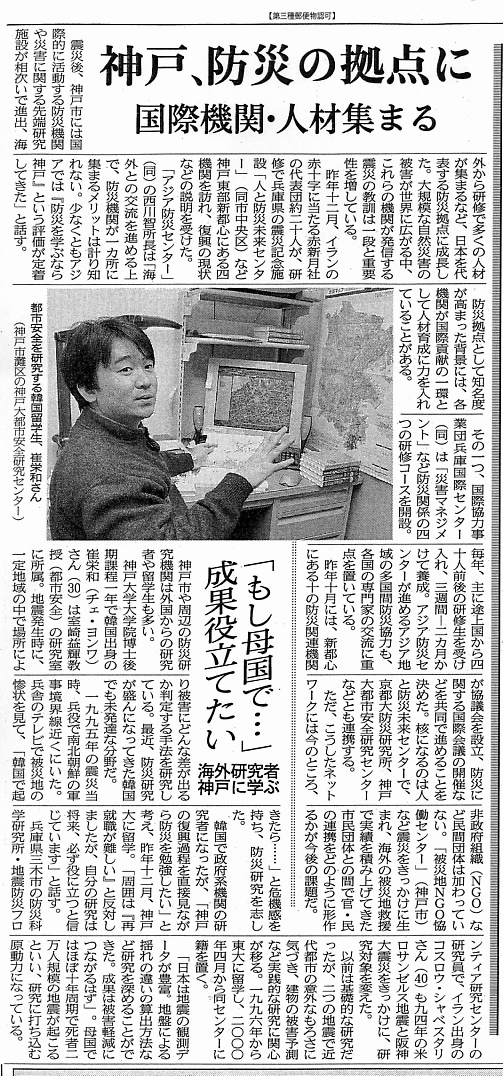 【第三種郵便物認可】
神戸、防災の拠点に
国際機関・人材集まる
震災後、神戸市には国
際的に活動する防災機関
や災害に関する先端研究
施設が相次いで進出、海
外から研修で多くの人材
が集まるなど、日本を代
表する防災拠点に成長し
た。大規模な自然災害の
被害が世界に広がる中、
これらの機関が発信する
震災の教訓は一段と重要
性を増している。
昨年十二月、イランの
赤十字に当たる赤新月社
の代表団約二十人が、研
修で兵庫県の震災記念施
設「人と防災未来センタ
ー」(同市中央区)など
神戸東部新都心にある四
機関を訪れ、復興の現状
などの説明を受けた。
「アジア防災センター」
(同)の西川智所長は「海
外との交流を進める上
で、防災機関が一カ所に
集まるメリットは計り知
れない。少なくともアジ
アでは『防災を学ぶなら
神戸』という評価が定着
してきた」と話す。
防災拠点として知名度
が高まった背景には、各
機関が国際貢献の一環と
して人材育成に力を入れ
ていることがある。
その一つ、国際協力事
業団兵庫国際センター
(同)は「災害マネジメ
ント」など防災関係の四
つの研修コースを開設。
毎年、主に途上国から四
十人前後の研修生を受け
入れ、三週間―二カ月か
けて養成。アジア防災セ
ンターが進めるアジア地
域の多国間防災協力も、
各国の専門家の交流に重
点を置いている。
昨年十月には、新都心
にある十の防災関連機関
が協議会を設立、防災に
関する国際会議の開催な
どを共同で進めることを
決めた。核になるのは人
と防災未来センターで、
京都大防災研究所、神戸
大都市安全研究センター
なども連携する。
ただ、こうしたネット
ワークには今のところ、
非政府組織(NGO)な
ど民間団体は加わってい
ない。「被災地NGO協
働センター」(神戸市)
など震災をきっかけに生
まれ、海外の被災地救援
で実績を積み上げてきた
市民団体との間で官・民
の連携をどのように形作
るかが今後の課題だ。
都市安全を研究する韓国留学生、崔栄和さん
(神戸市灘区の神戸大都市安全研究センター)
「もし母国で…」
成果役立てたい
海外研究者
神戸に学ぶ
神戸市や周辺の防災研
究機関は外国からの研究
者や留学生も多い。
神戸大学大学院博士後
期課程一年で韓国出身の
崔栄和(チェ・ヨンワ)
さん(30)は室崎益輝教
授(都市安全)の研究室
に所属。地震発生時に、
一定地域の中で場所によ
り被害にどんな差が出る
か判定する手法を研究し
ている。最近、防災研究
が盛んになってきた韓国
でも未発達な分野だ。
一九九五年の震災当
時、兵役で南北朝鮮の軍
事境界線近くにいた。
兵舎のテレビで被災地の
惨状を見て、「韓国で起
きたら……」と危機感を
持ち、防災研究を志し
た。
韓国で政府系機関の研
究者になったが、「神戸
の復興過程を直接見なが
ら防災を勉強したい」と
考え、昨年十二月、神戸
大に留学。「周囲は『再
就職が難しい』と反対し
ましたが、自分の研究は
将来、必ず役に立つと信
じています」と話す。
兵庫県三木市の防災科
学研究所・地震防災フロ
ンティア研究センターの
研究員で、イラン出身の
コスロウ・シャベスタリ
さん(40)も九四年の米
ロサンゼルス地震と阪神
大震災をきっかけに、研
究対象を変えた。
以前は基礎的な研究だ
ったが、二つの地震で近
代都市の意外なもろさに
気づき、建物の被害予測
など実践的な研究に関心
が移る。一九九六年から
東大に留学し、二〇〇〇
年四月から同センターに
籍を置く。
「日本は地震の観測デ
ータが豊富。地盤による
揺れの違いの算出方法な
ど研究を深めることがで
きた。成果は被害軽減に
つながるはず」。母国で
はほぼ十年周期で死者二
万人規模の地震が起こる
といい、研究に打ち込む
原動力になっている。